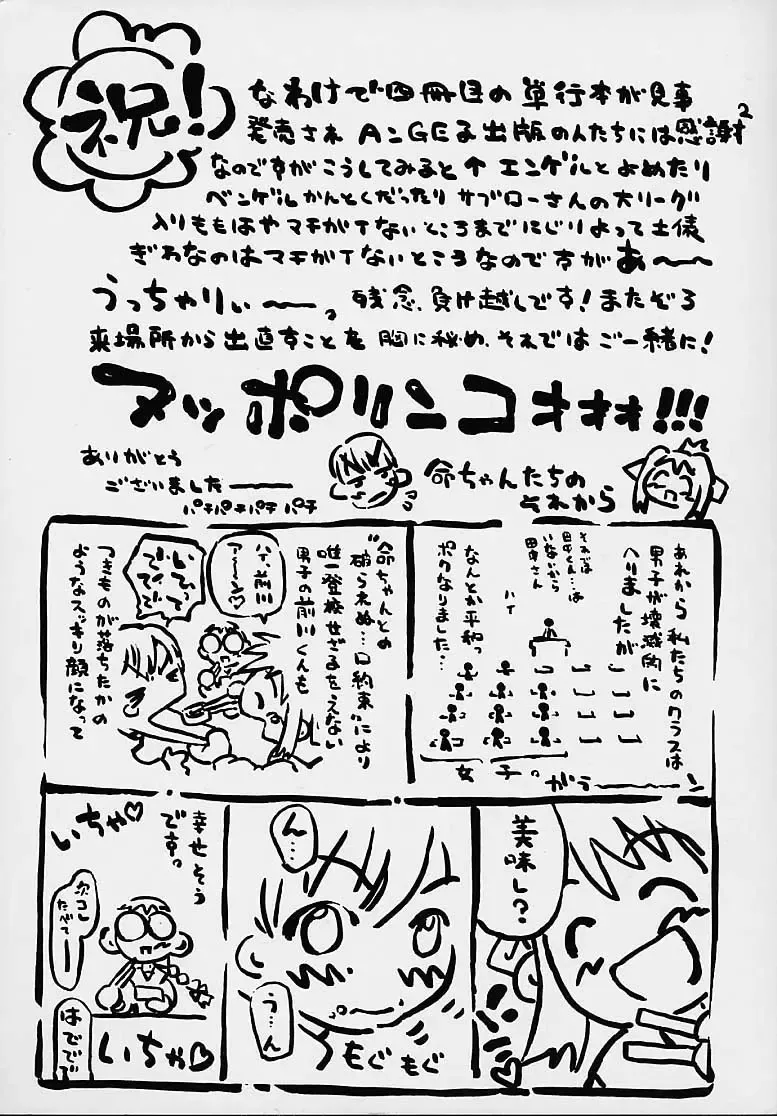 祝!
なわけで四冊目の単行本が見事
発売され AンGEる出版の人たちには感謝²
なのですがこうしてみると↑エンゲルとよめたり
ベンゲルかんとくだったり サブローさんの大リーグ
入りももはやマチがイないところまでにじりよって土俵
ぎわなのはマチがイないところなのですがあ〜〜
うっちゃりぃ〜〜っ 残念、負け越しです!またぞろ
来場所から出直すことを胸に秘め、それではご一緒に!
ヌッポリンコオオォ!!!
ありがとう
ございました――
パチパチパチパチ
命ちゃんたちの
それから
あれから私たちのクラスは
男子が壊滅的に
へりましたが
それでは
田中くん…は
いないから
田中さん
ハイ
なんとか平和っ
ポクなりました…
女子っ
がら―――ン
命ちゃんとの
"破られぬ…口約束"により
唯一登校せざるをえない
男子の前川くんも
ハイ、前川
ア〜〜ン♡
つきものが落ちたかの
ようなスッキリ顔になって
美味し?
ん…
う…ん
もぐもぐ
幸せそう
ですっ
いちゃ♡
次コレ
たべて――
はででで
いちゃ♡